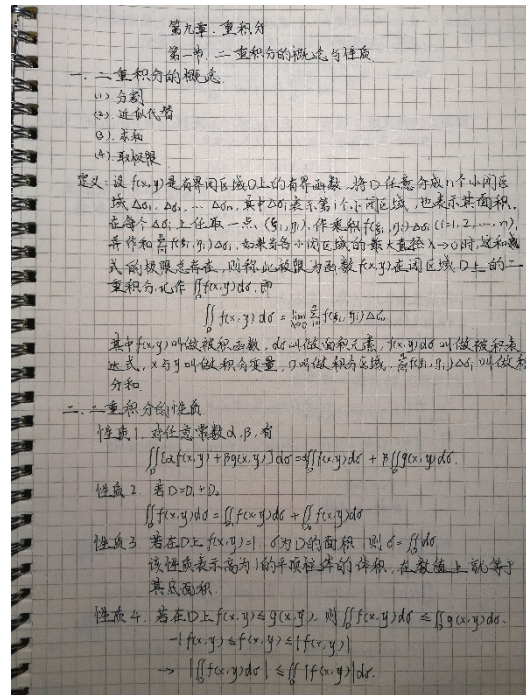 第九章. 重积分
第一节. 二重积分的概念与性质
一. 二重积分的概念
(1). 分割
(2). 近似代替
(3). 求和
(4). 取极限
定义: 设f(x,y)是有界闭区域D上的有界函数, 将D任意分成n个小闭区
域 Δσ₁, Δσ₂, … Δσn, 其中Δσi表示第i个小闭区域, 也表示其面积.
在每个Δσi上任取一点 (ξi,ηi), 作乘积f(ξi,ηi)Δσi (i=1,2,…,n),
并作和 Σf(ξi,ηi)Δσi, 如果当各小闭区域的最大直径λ→0时, 这和式
式的极限总存在, 则称此极限为函数f(x,y)在闭区域D上的二
重积分, 记作 ∬f(x,y)dσ, 即
∬f(x,y)dσ = lim Σ f(ξi,ηi)Δσi
其中f(x,y)叫做被积函数, dσ叫做面积元素, f(x,y)dσ叫做被积表
达式, x与y叫做积分变量, D叫做积分区域, Σf(ξi,ηi)Δσi叫做积
分和.
二. 二重积分的性质
性质1. 对任意常数α,β, 有
∬[αf(x,y)+βg(x,y)]dσ=α∬f(x,y)dσ + β∬g(x,y)dσ.
性质2. 若D=D₁+D₂
∬f(x,y)dσ=∬f(x,y)dσ + ∬f(x,y)dσ
性质3. 若在D上f(x,y)=1, σ为D的面积, 则σ=∬dσ
该性质表示高为1的平顶柱体的体积, 在数值上就等于
其底面积.
性质4. 若在D上f(x,y)≤g(x,y), 则∬f(x,y)dσ ≤∬g(x,y)dσ.
-|f(x,y)|≤f(x,y)≤|f(x,y)|
→ |∬f(x,y)dσ| ≤∬|f(x,y)|dσ.